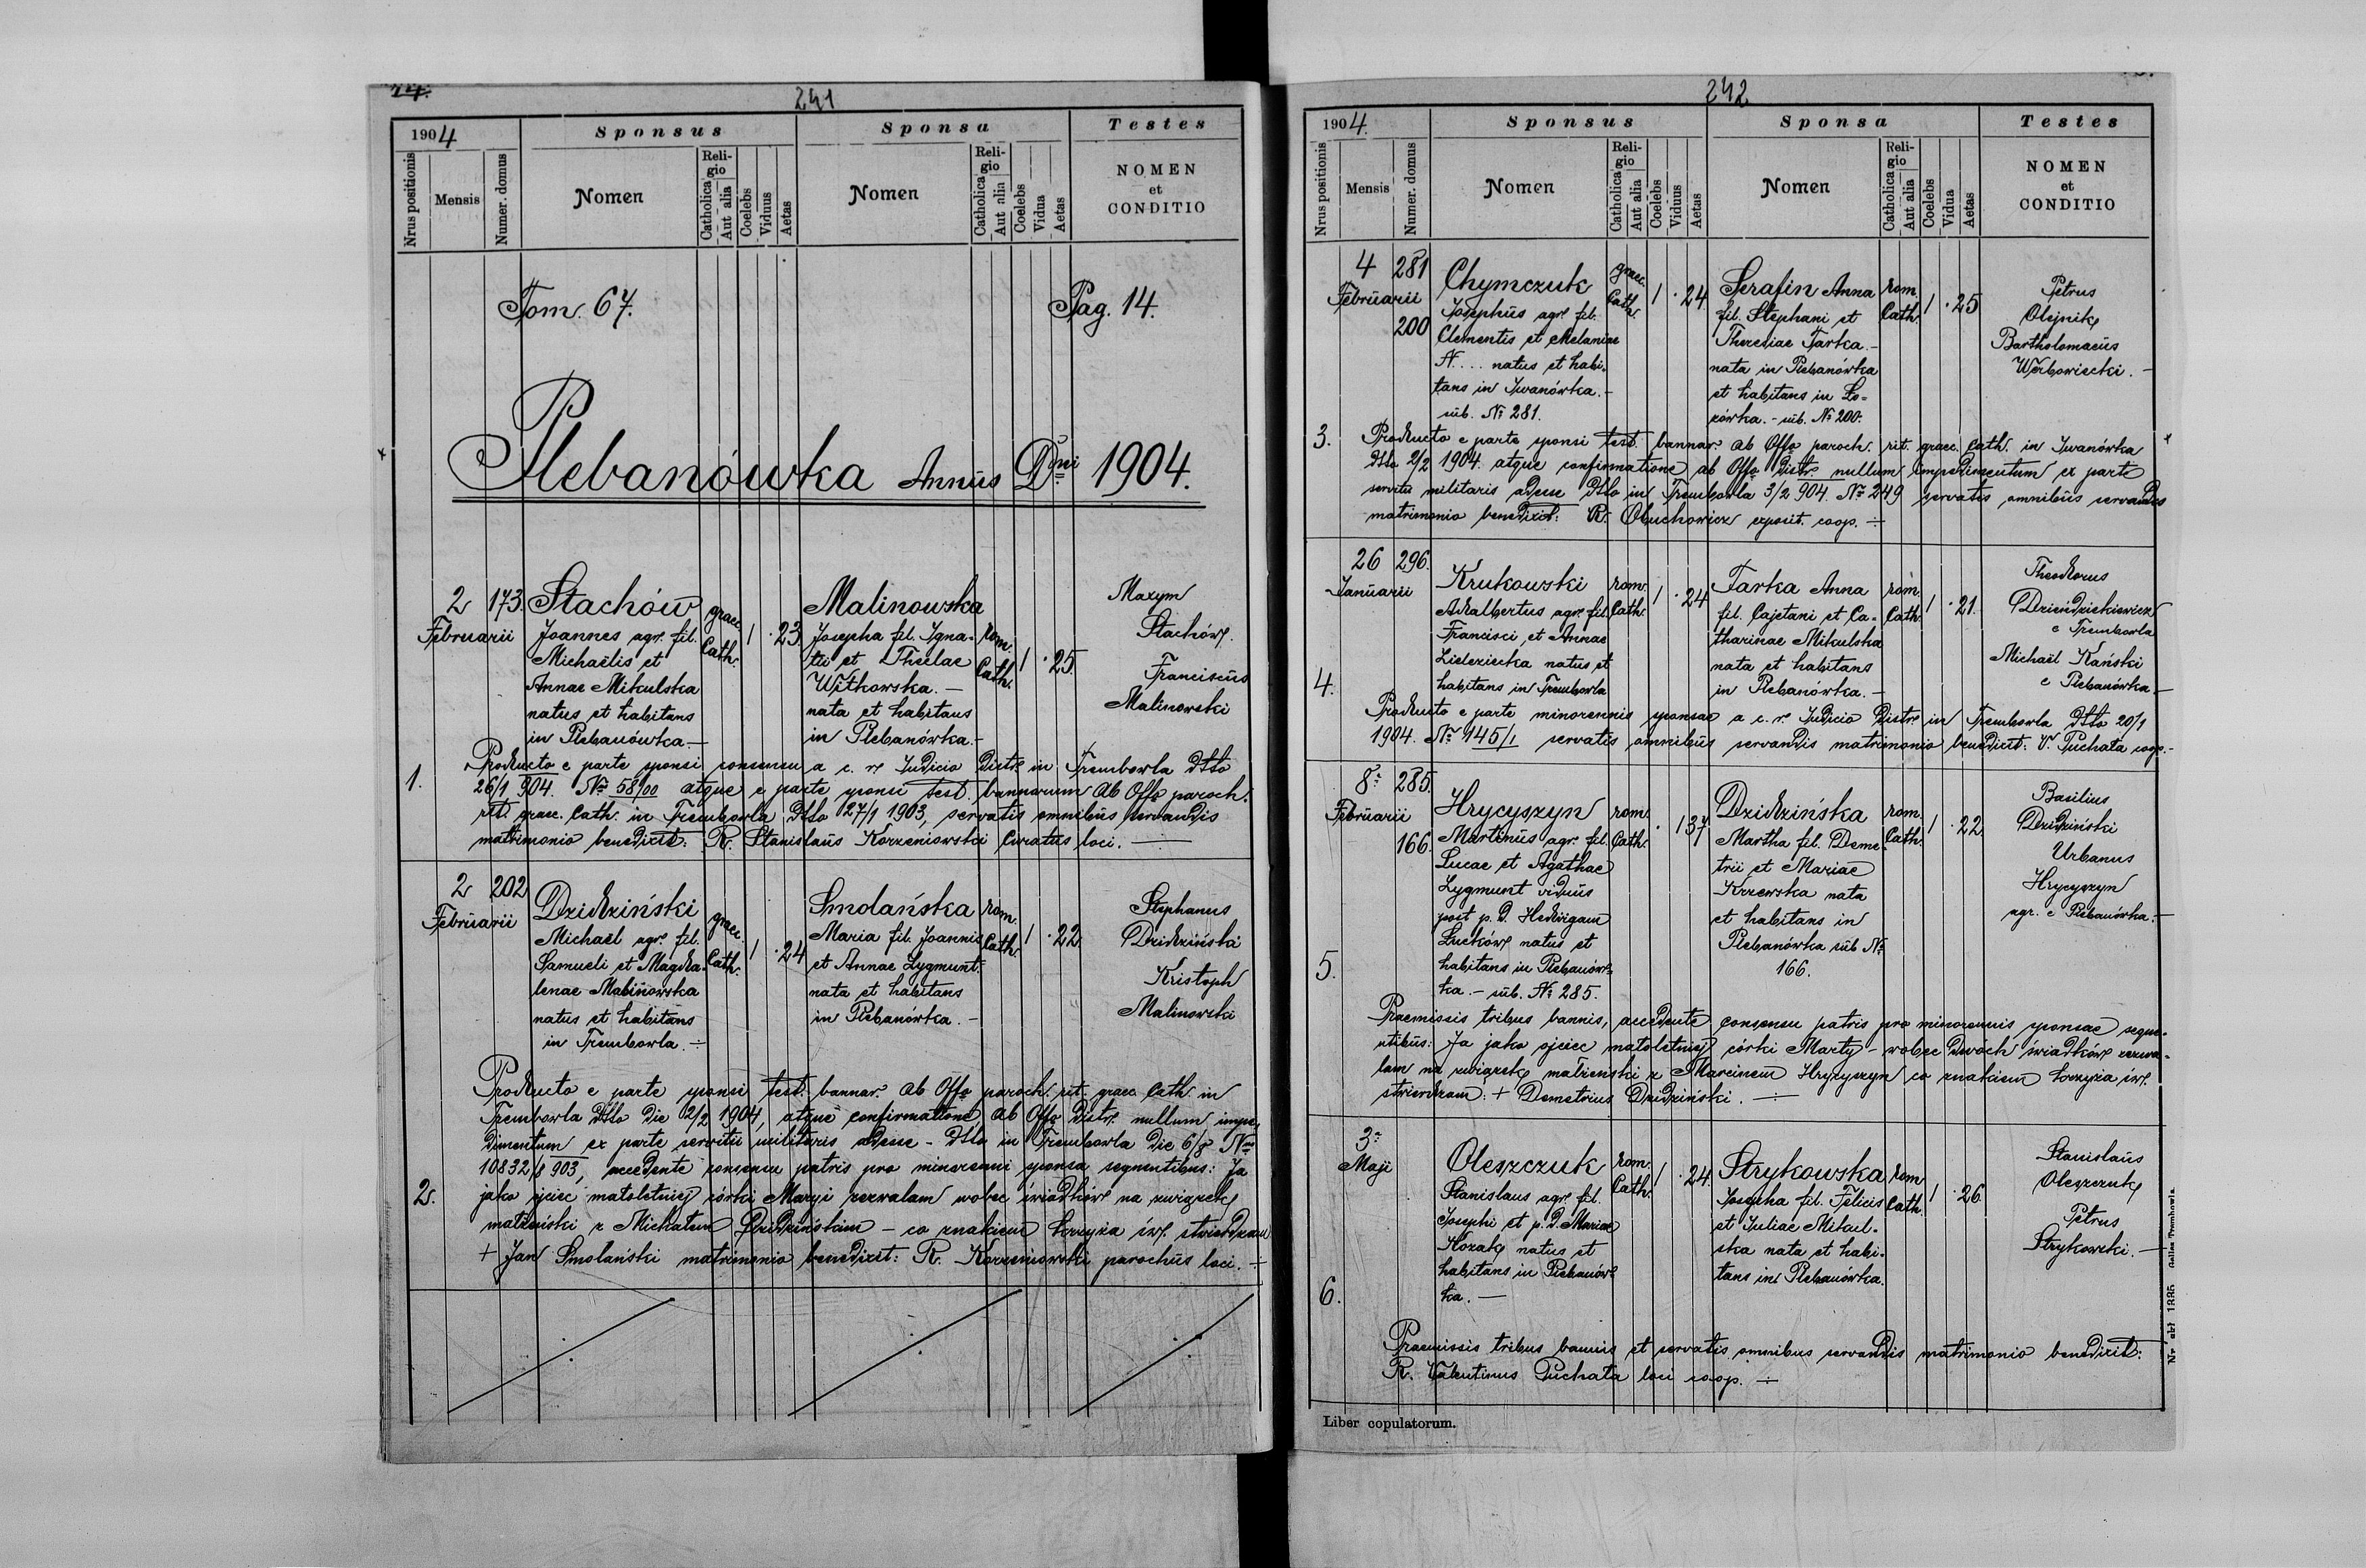 241
1904
Sponsus
Sponsa
Testes
Nrus positionis
Mensis
Numer. domus
Nomen
Religio
Catholica
Aut alia
Coelebs
Viduus
Aetas
Nomen
Religio
Catholica
Aut alia
Coelebs
Vidua
Aetas
NOMEN
et
CONDITIO
Tom. 67.
Pag. 14.
Plebanówka Annus Dni 1904.
1.
2 Februarii
173.
Stachów
Joannes agr. fil.
Michaëlis et
Annae Mikulska
natus et habitans
in Plebanówka.—
graec. Cath.
1 . 23
Malinowska
Josepha fil. Igna-
tii et Theclae
Witkowska.—
nata et habitans
in Plebanówka.—
rom. Cath.
1 . 25.
Maxym
Stachów.
Franciscus
Malinowski
Producto e parte sponsi consensu a c. r. Judicio Distr. in Trembowla dtto
26/1 904. No 58/00 atque e parte sponsi test. bannorum ab Offo paroch.
rit. graec. Cath. in Trembowla dtto 27/1 1903, servatis omnibus servandis
matrimonio benedixit: R. Stanislaus Korzeniowski Curatus loci.—
2.
2 Februarii
202
Dzidziński
Michaël agr. fil.
Samueli et Magda-
lenae Malinowska
natus et habitans
in Trembowla.÷
graec. Cath.
1 . 24
Smolańska
Maria fil. Joannis
et Annae Zygmunt.
nata et habitans
in Plebanówka.—
rom. Cath.
1 . 22
Stephanus
Dzidziński
Kristoph
Malinowski
Producto e parte sponsi test. bannor. ab Offo paroch. rit. graec. Cath. in
Trembowla dtto die 2/2 1904, atque confirmatione ab Offo Distr. nullum impe-
dimentum ex parte servitii militaris adesse - dtto in Trembowla die 6/8 No
10832/8 903, accedente consensu patris pro minorenni sponsa sequentibus: Ja
jako ojciec małoletniej córki Maryi zezwalam wobec świadków na związek
małżeński z Michałem Dzidzińskim – co znakiem krzyża św. stwierdzam
+ Jan Smolański matrimonio benedixit: R. Korzeniowski parochus loci.÷
242
1904.
Sponsus
Sponsa
Testes
Nrus positionis
Mensis
Numer. domus
Nomen
Religio
Catholica
Aut alia
Coelebs
Viduus
Aetas
Nomen
Religio
Catholica
Aut alia
Coelebs
Vidua
Aetas
NOMEN
et
CONDITIO
3.
4 Februarii
281
200
Chymczuk
Josephus agr. fil.
Clementis et Melaniae
N.... natus et habi-
tans in Iwanówka.—
sub. No 281.
graec. Cath.
1 . 24
Serafin Anna
fil. Stephani et
Theresiae Tarka.—
nata in Plebanówka
et habitans in Ło=
zówka.- sub. No 200.
rom. Cath.
1 . 25
Petrus
Olejnik
Bartholomaeus
Werbowiecki.—
Producto e parte sponsi test. bannor. ab Offo paroch. rit. graec. Cath. in Iwanówka
dtto 2/2 1904. atque confirmatione ab Offo Distr. nullum impedimentum ex parte
servitii militaris adesse dtto in Trembowla 3/2 904. No 249 servatis omnibus servandis
matrimonio benedixit: R. Obuchowicz exposit. coop.÷
4.
26 Januarii
296.
Krukowski
Adalbertus agr. fil.
Francisci et Annae
Zieleziecka natus et
habitans in Trembowla
rom. Cath.
1 . 24
Tarka Anna
fil. Cajetani et Ca-
tharinae Mikulska
nata et habitans
in Plebanówka.—
rom. Cath.
1 . 21.
Theodorus
e Trembowla
Michaël Kański
e Plebanówka.—
Producto e parte minorennis sponsae a c. r. Judicio Distr. in Trembowla dtto 20/1
1904. No 145/1 servatis omnibus servandis matrimonio benedixit: V. Puchała coop.-
5.
8. Februarii
285.
166.
Hrycyszyn
Martinus agr. fil.
Lucae et Agathae
Zygmunt viduus
post p. d. Hedvigam
Luców natus et
habitans in Plebanów-
ka.- sub. No 285.
rom. Cath.
. 1 37
Dzidzińska
Martha fil. Deme-
trii et Mariae
Krzewska nata
et habitans in
Plebanówka sub No
166.
rom. Cath.
1 . 22
Basilius
Dzidziński
Urbanus
Hrycyszyn
agr. e Plebanówka.—
Praemissis tribus bannis, accedente consensu patris pro minorennis sponsae seque-
ntibus: Ja jako ojciec małoletniej córki Marty – wobec dwóch świadków zezwa-
lam na związek małżenski z Marcinem Hrycyszyn co znakiem krzyża św.
stwierdzam: + Demetrius Dzidziński.—
6.
3. Maji
Oleszczuk
Stanislaus agr. fil.
Josephi et p. d. Mariae
Kozak natus et
habitans in Plebanów-
ka.—
rom. Cath.
1 . 24.
Strykowska
Josepha fil. Felicis
et Juliae Mikul-
ska nata et habi-
tans in Plebanówka.
rom. Cath.
1 . 26.
Stanislaus
Oleszczuk
Petrus
Strykowski.—
Praemissis tribus bannis et servatis omnibus servandis matrimonio benedixit:
R. Valentinus Puchała loci coop.÷
Liber copulatorum.